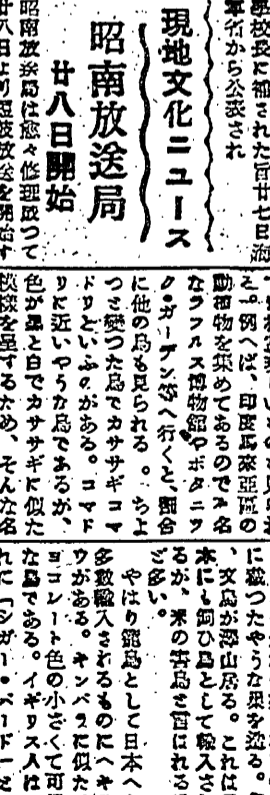 学校長に補された旨廿七日海
軍省から公表され
現地文化ニュース
昭南放送局
廿八日開始
昭南放送局は愈々修理成つて
廿八日より短波放送を開始す
と。例へば、印度馬来亜区の
動植物を集めてあるので有名
なラフルス博物館やボタニツ
ク・ガーデン等へ行くと、割合
に他の鳥も見られる。ちよ
つと変つた鳥でカササギコマ
ドリといふのがある。コマド
リに近いやうな鳥であるが、
色が黒と白でカササギに似た
模様を呈するため、そんな名
に似つたやうな巣を造る。
、文鳥が沢山居る。これは日
本にも飼ひ鳥として輸入さ
るが、米の害鳥と言はれる
ご多い。
やはり籠鳥として日本へ
多数輸入されるものにヘキ
ウがある。キンパラに似た
ヨコレート色の小さくて可
な鳥である。イギリス人は
れに「シガー・バード」と